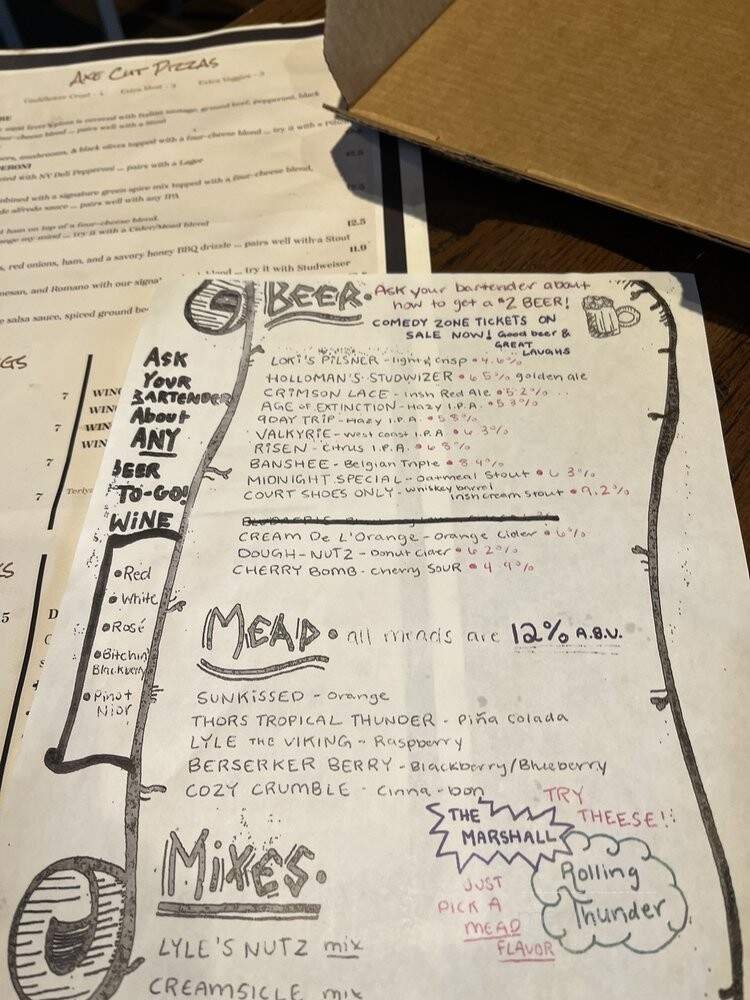 AXE CUT PIZZAS
Cauliflower Crust - 4 Extra Meat - 3 Extra Veggies - 2
is covered with Italian sausage, ground beef, pepperoni, black
four-cheese blend ... pairs well with a Stout
mushrooms, & black olives topped with a four-cheese blend ... try it with a
PERONI
with NY Deli Pepperoni ... pairs with a Lager
mbined with a signature green spice mix topped with a four-cheese blend,
alfredo sauce ... pairs well with any IPA
ham on top of a four-cheese blend.
my mind ... try it with a Cider/Mead blend 12.5
red onions, ham, and a savory honey BBQ drizzle ... pairs well with a Stout 11.9
mesan, and Romano with our signa blend ... try it with Studweiser
salsa sauce, spiced ground be
GS
7 WING
7 WIN
7 WIN
7
BEER. Ask your bartender about
how to get a $2 BEER!
COMEDY ZONE TICKETS ON
SALE NOW! Good beer &
GREAT
LAUGHS
ASK
YOUR
BARTENDER
ABOUT
ANY
BEER
TO-GO!
LOKI'S PILSNER - light & crisp • 4.6%
HOLLOMAN'S STUDWIZER • 6.5% golden ale
CRIMSON LACE - Irish Red Ale • 5.2%
AGE OF EXTINCTION - Hazy I.P.A. • 5.3%
9DAY TRIP - Hazy I.P.A. • 5.8%
VALKYRIE - West Coast I.P.A. • 6.3%
RISEN - Citrus I.P.A. • 6.8%
BANSHEE - Belgian Triple • 8.4%
MIDNIGHT SPECIAL - Oatmeal Stout • 6.3%
COURT SHOES ONLY - whiskey barrel
Irish cream stout • 9.2%
CREAM DE L'ORANGE - Orange Cider • 6%
DOUGH-NUTZ - Donut Cider • 6.2%
CHERRY BOMB - Cherry SOUR • 4.9%
WINE
• Red
• White
• Rosé
• Bitchin'
Blackberry
• Pinot
Nior
MEAD • all meads are 12% A.B.V.
SUNKISSED - Orange
THORS TROPICAL THUNDER - Piña Colada
LYLE THE VIKING - Raspberry
BERSERKER BERRY - Blackberry/Blueberry
COZY CRUMBLE - Cinna-bon
TRY
THEESE!!
THE
MARSHALL
Rolling
Thunder
JUST
PICK A
MEAD
FLAVOR
MIXES.
LYLE'S NUTZ mix
CREAMSICLE mix